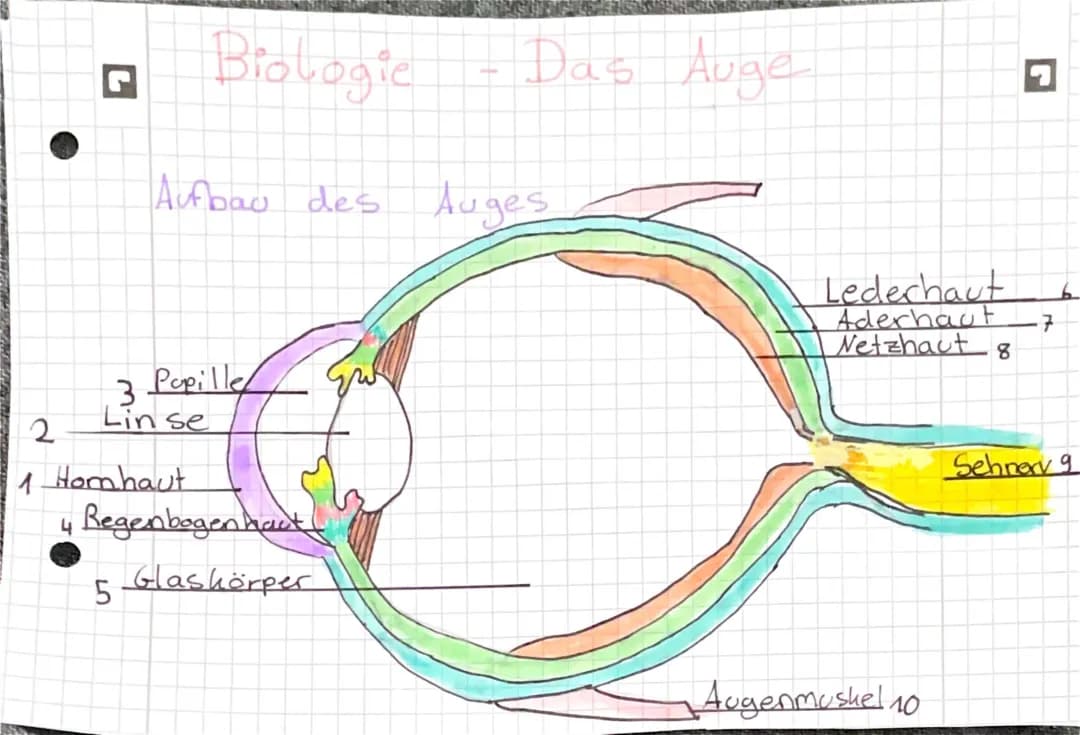 Biologie - Das Auge
Aufbau des Auges
Lederhaut 6
Aderhaut 7
Netzhaut 8
3 Pupille
2 Linse
Sehnerv 9
1 Hornhaut
4 Regenbogenhaut
5 Glaskörper
Augenmuskel 10